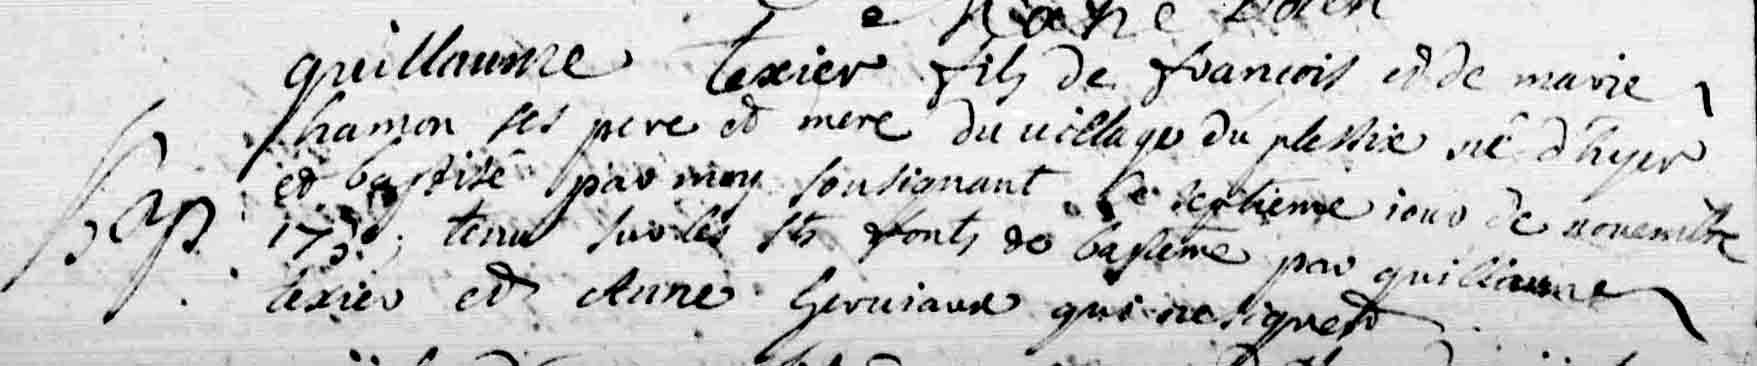 guillaume texier fils de francois et de marie
hamon ses pere et mere du village du plessix né d'hyer
et baptisé par moy sousignant le septieme iour de novembre
bap. 1730, tenu sur les sts fonts de baptême par guillaume
texier et Anne Gerviaux qui ne signent